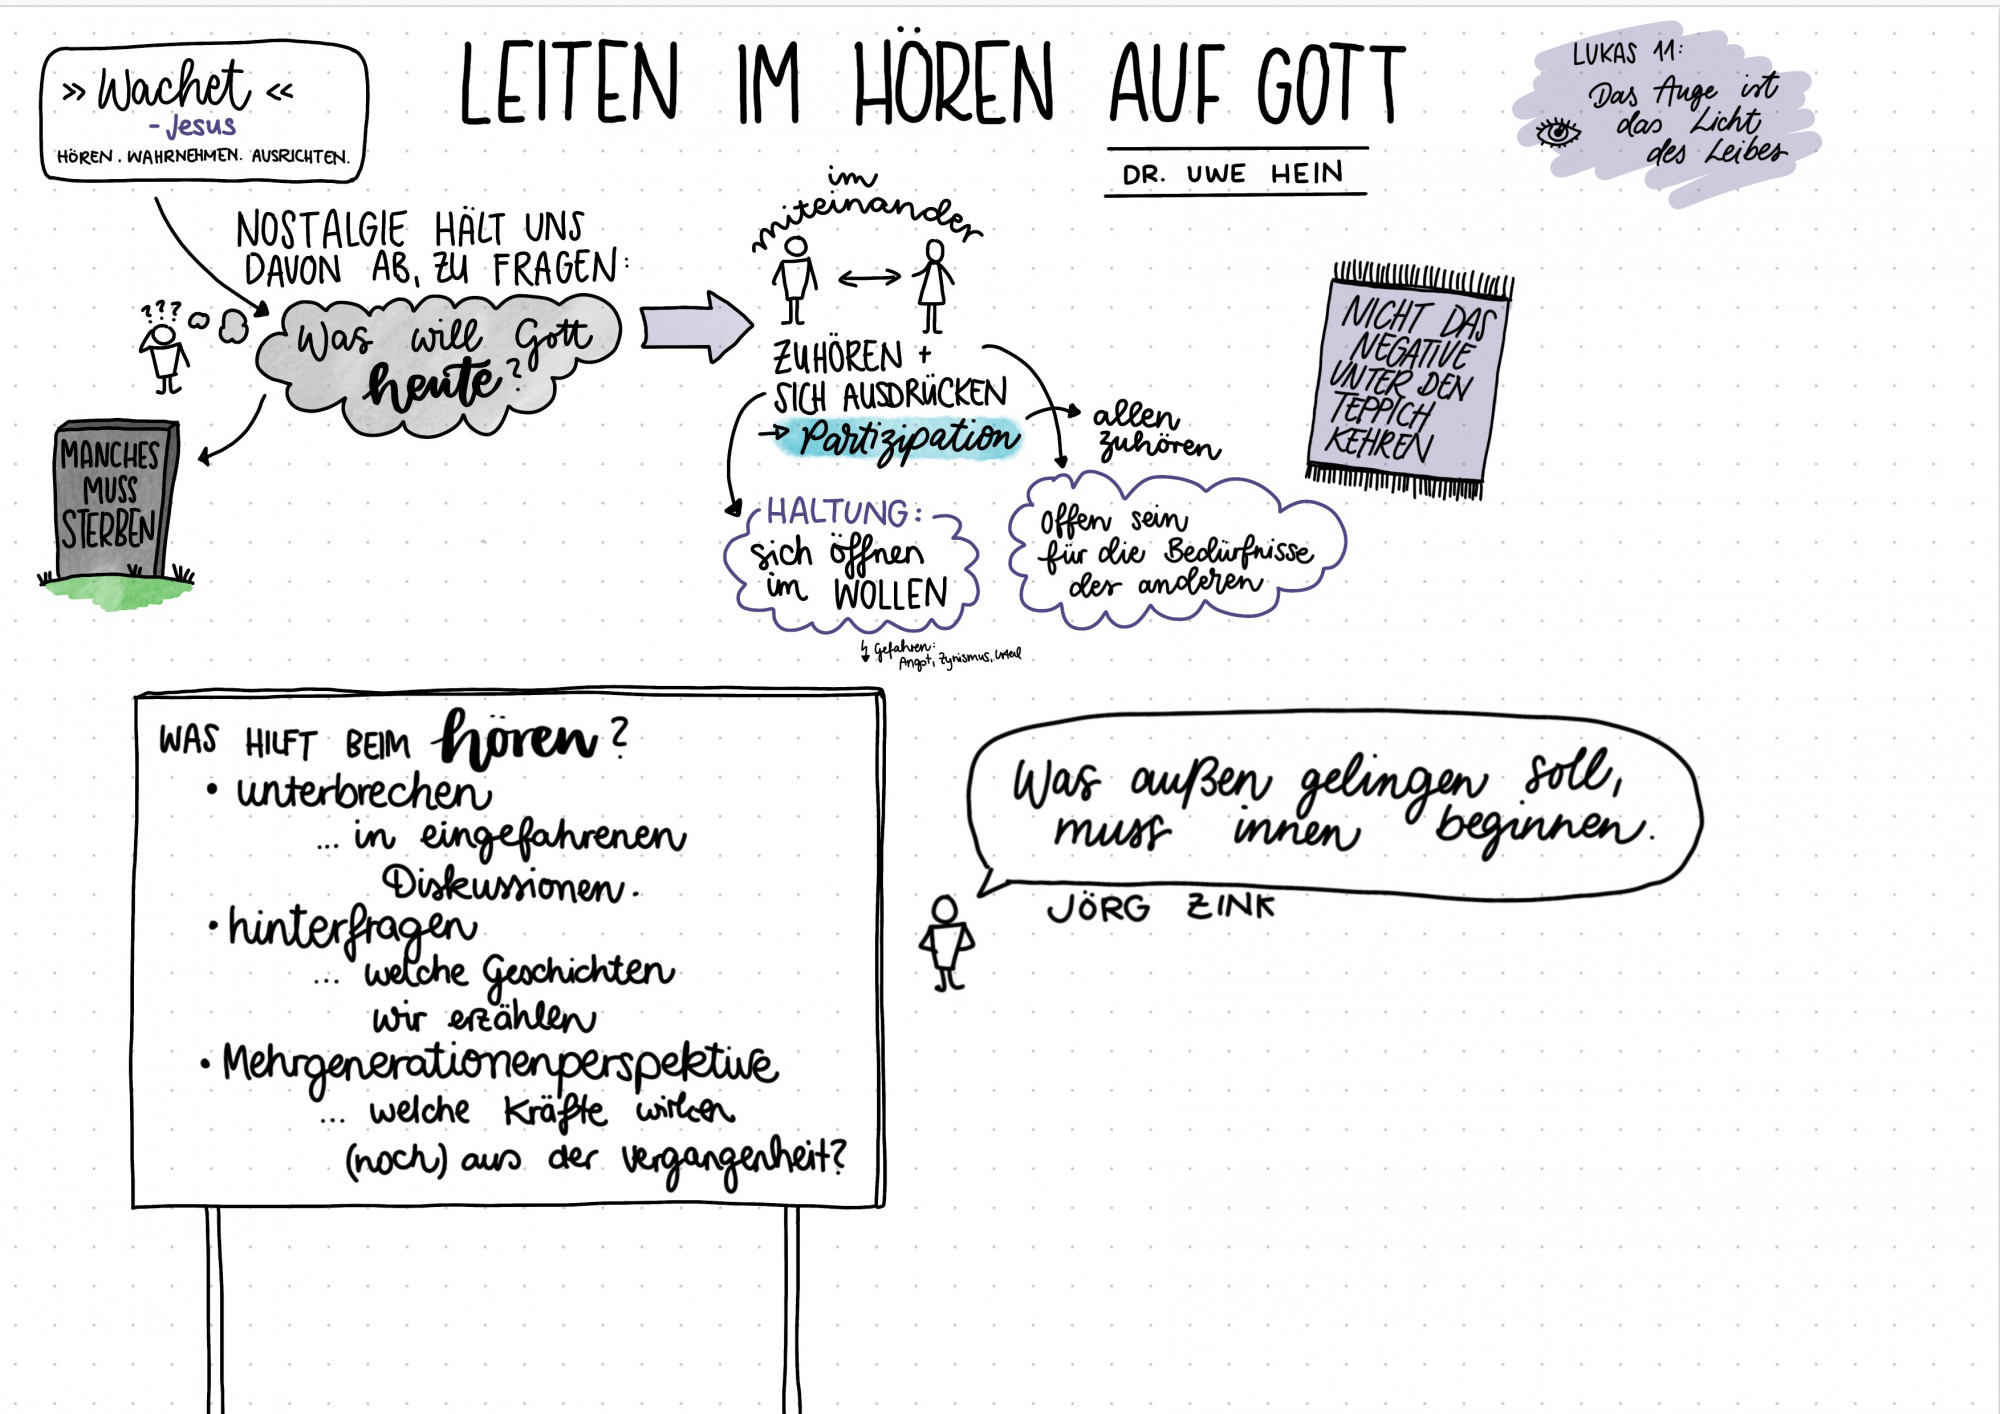 LEITEN IM HÖREN AUF GOTT
DR. UWE HEIN
» Wachet «
- Jesus
HÖREN. WAHRNEHMEN. AUSRICHTEN.
LUKAS 11:
Das Auge ist
das Licht
des Leibes
NOSTALGIE HÄLT UNS
DAVON AB, ZU FRAGEN:
???
Was will Gott
heute?
MANCHES
MUSS
STERBEN
im
miteinander
ZUHÖREN +
SICH AUSDRÜCKEN
→ Partizipation
allen
zuhören
HALTUNG:
sich öffnen
im WOLLEN
Gefahren:
Angst, Zynismus, Urteil
offen sein
für die Bedürfnisse
des anderen
NICHT DAS
NEGATIVE
UNTER DEN
TEPPICH
KEHREN
WAS HILFT BEIM hören?
• unterbrechen
... in eingefahrenen
Diskussionen.
• hinterfragen
... welche Geschichten
wir erzählen
• Mehrgenerationenperspektive
... welche Kräfte wirken
(noch) aus der Vergangenheit?
Was außen gelingen soll,
muss innen beginnen.
JÖRG ZINK